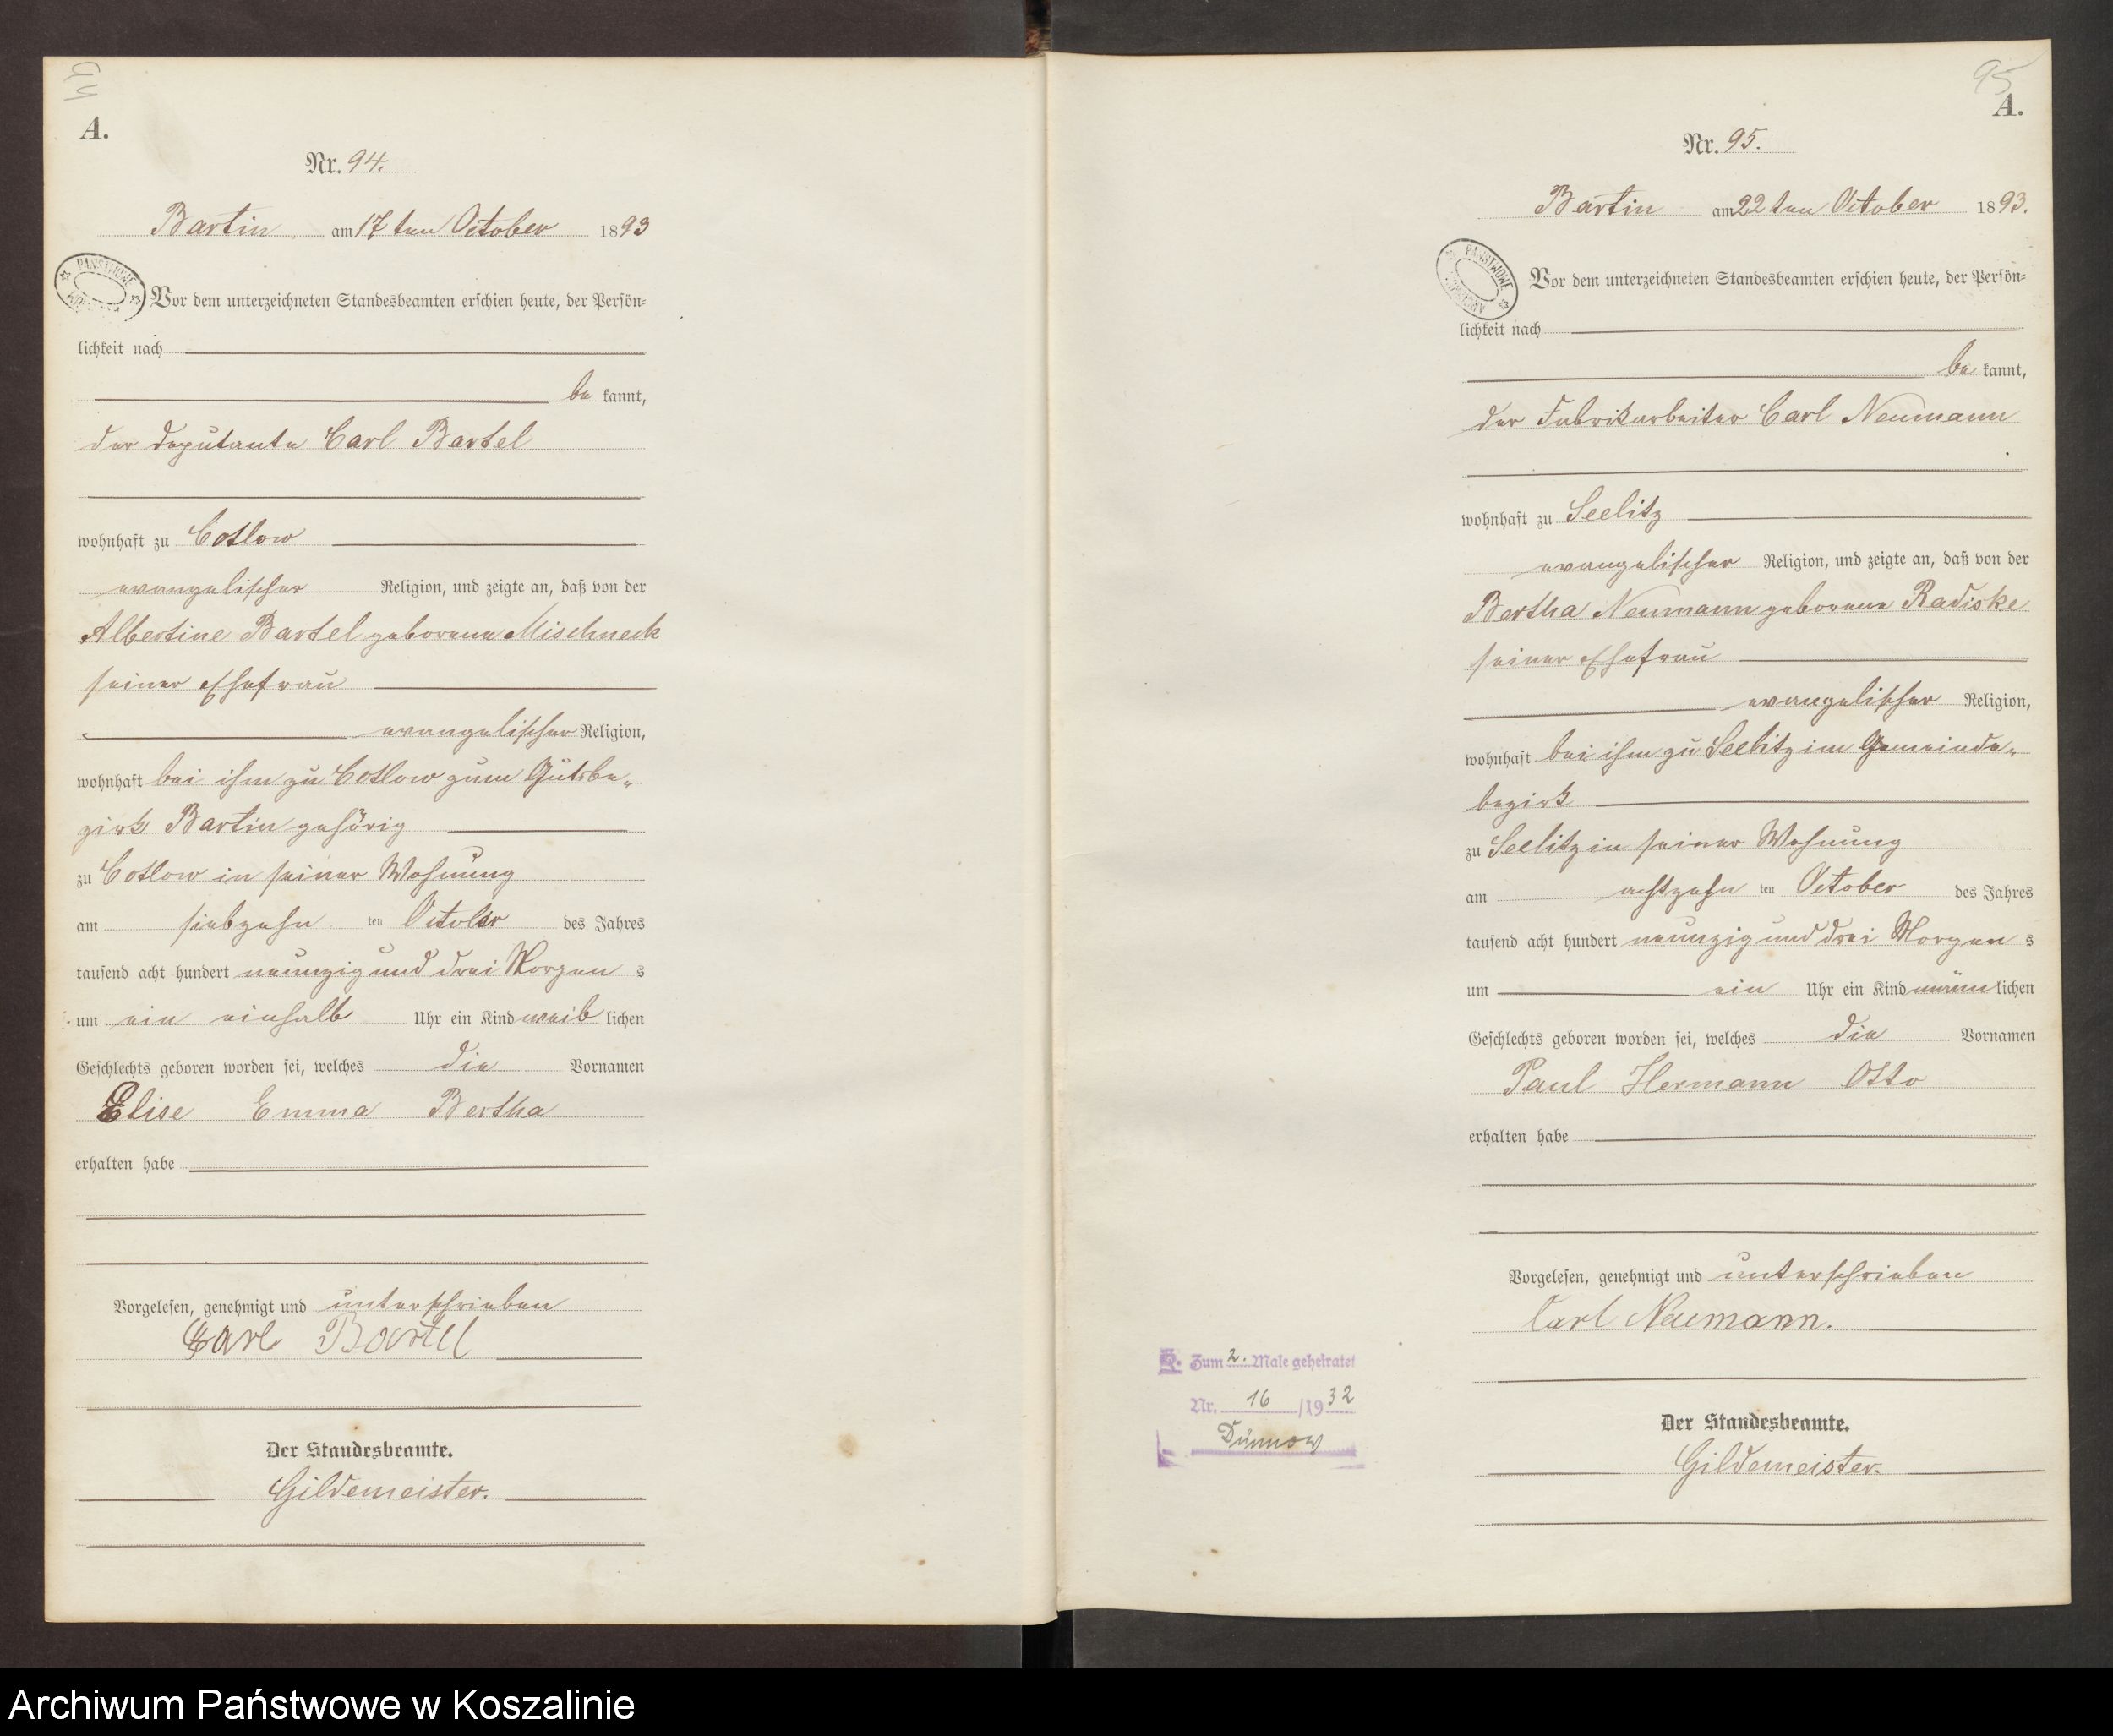 94
A.
Nr. 94.
Bartin am 17 ten October 1893
PAŃSTWOWE
Vor dem unterzeichneten Standesbeamten erschien heute, der Persön=
lichkeit nach
be kannt,
der Deputante Carl Bartel
wohnhaft zu Cotlow
evangelischer Religion, und zeigte an, daß von der
Albertine Bartel geborene Mischneck
seiner Ehefrau
evangelischer Religion,
wohnhaft bei ihm zu Cotlow zum Gutsbe„
zirk Bartin gehörig
zu Cotlow in seiner Wohnung
am siebzehn ten October des Jahres
tausend acht hundert neunzig und drei Morgen s
um ein einhalb Uhr ein Kind weib lichen
Geschlechts geboren worden sei, welches die Vornamen
Elise Emma Bertha
erhalten habe
Vorgelesen, genehmigt und unterschrieben
Carl Bartel
Der Standesbeamte.
Gildemeister.
95
A.
Nr. 95.
Bartin am 22 ten October 1893.
PAŃSTWOWE
Vor dem unterzeichneten Standesbeamten erschien heute, der Persön=
lichkeit nach
be kannt,
der Fabrikarbeiter Carl Neumann
wohnhaft zu Seelitz
evangelischer Religion, und zeigte an, daß von der
Bertha Neumann geborene Radiske
seiner Ehefrau
evangelischer Religion,
wohnhaft bei ihm zu Seelitz im Gemeinde„
bezirk
zu Seelitz in seiner Wohnung
am achtzehn ten October des Jahres
tausend acht hundert neunzig und drei Morgen s
um ein Uhr ein Kind männ lichen
Geschlechts geboren worden sei, welches die Vornamen
Paul Hermann Otto
erhalten habe
Vorgelesen, genehmigt und unterschrieben
Carl Neumann.
Der Standesbeamte.
Gildemeister.
Zum 2. Male geheiratet
Nr. 16 /1932
Dünnow
Archiwum Państwowe w Koszalinie